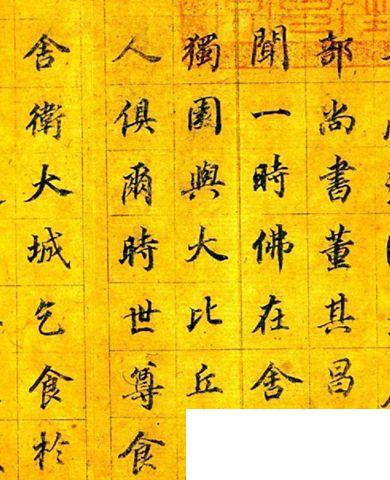 部尚書董其昌
聞一時佛在舍
獨園與大比丘
人俱爾時世尊食
舍衛大城乞食於